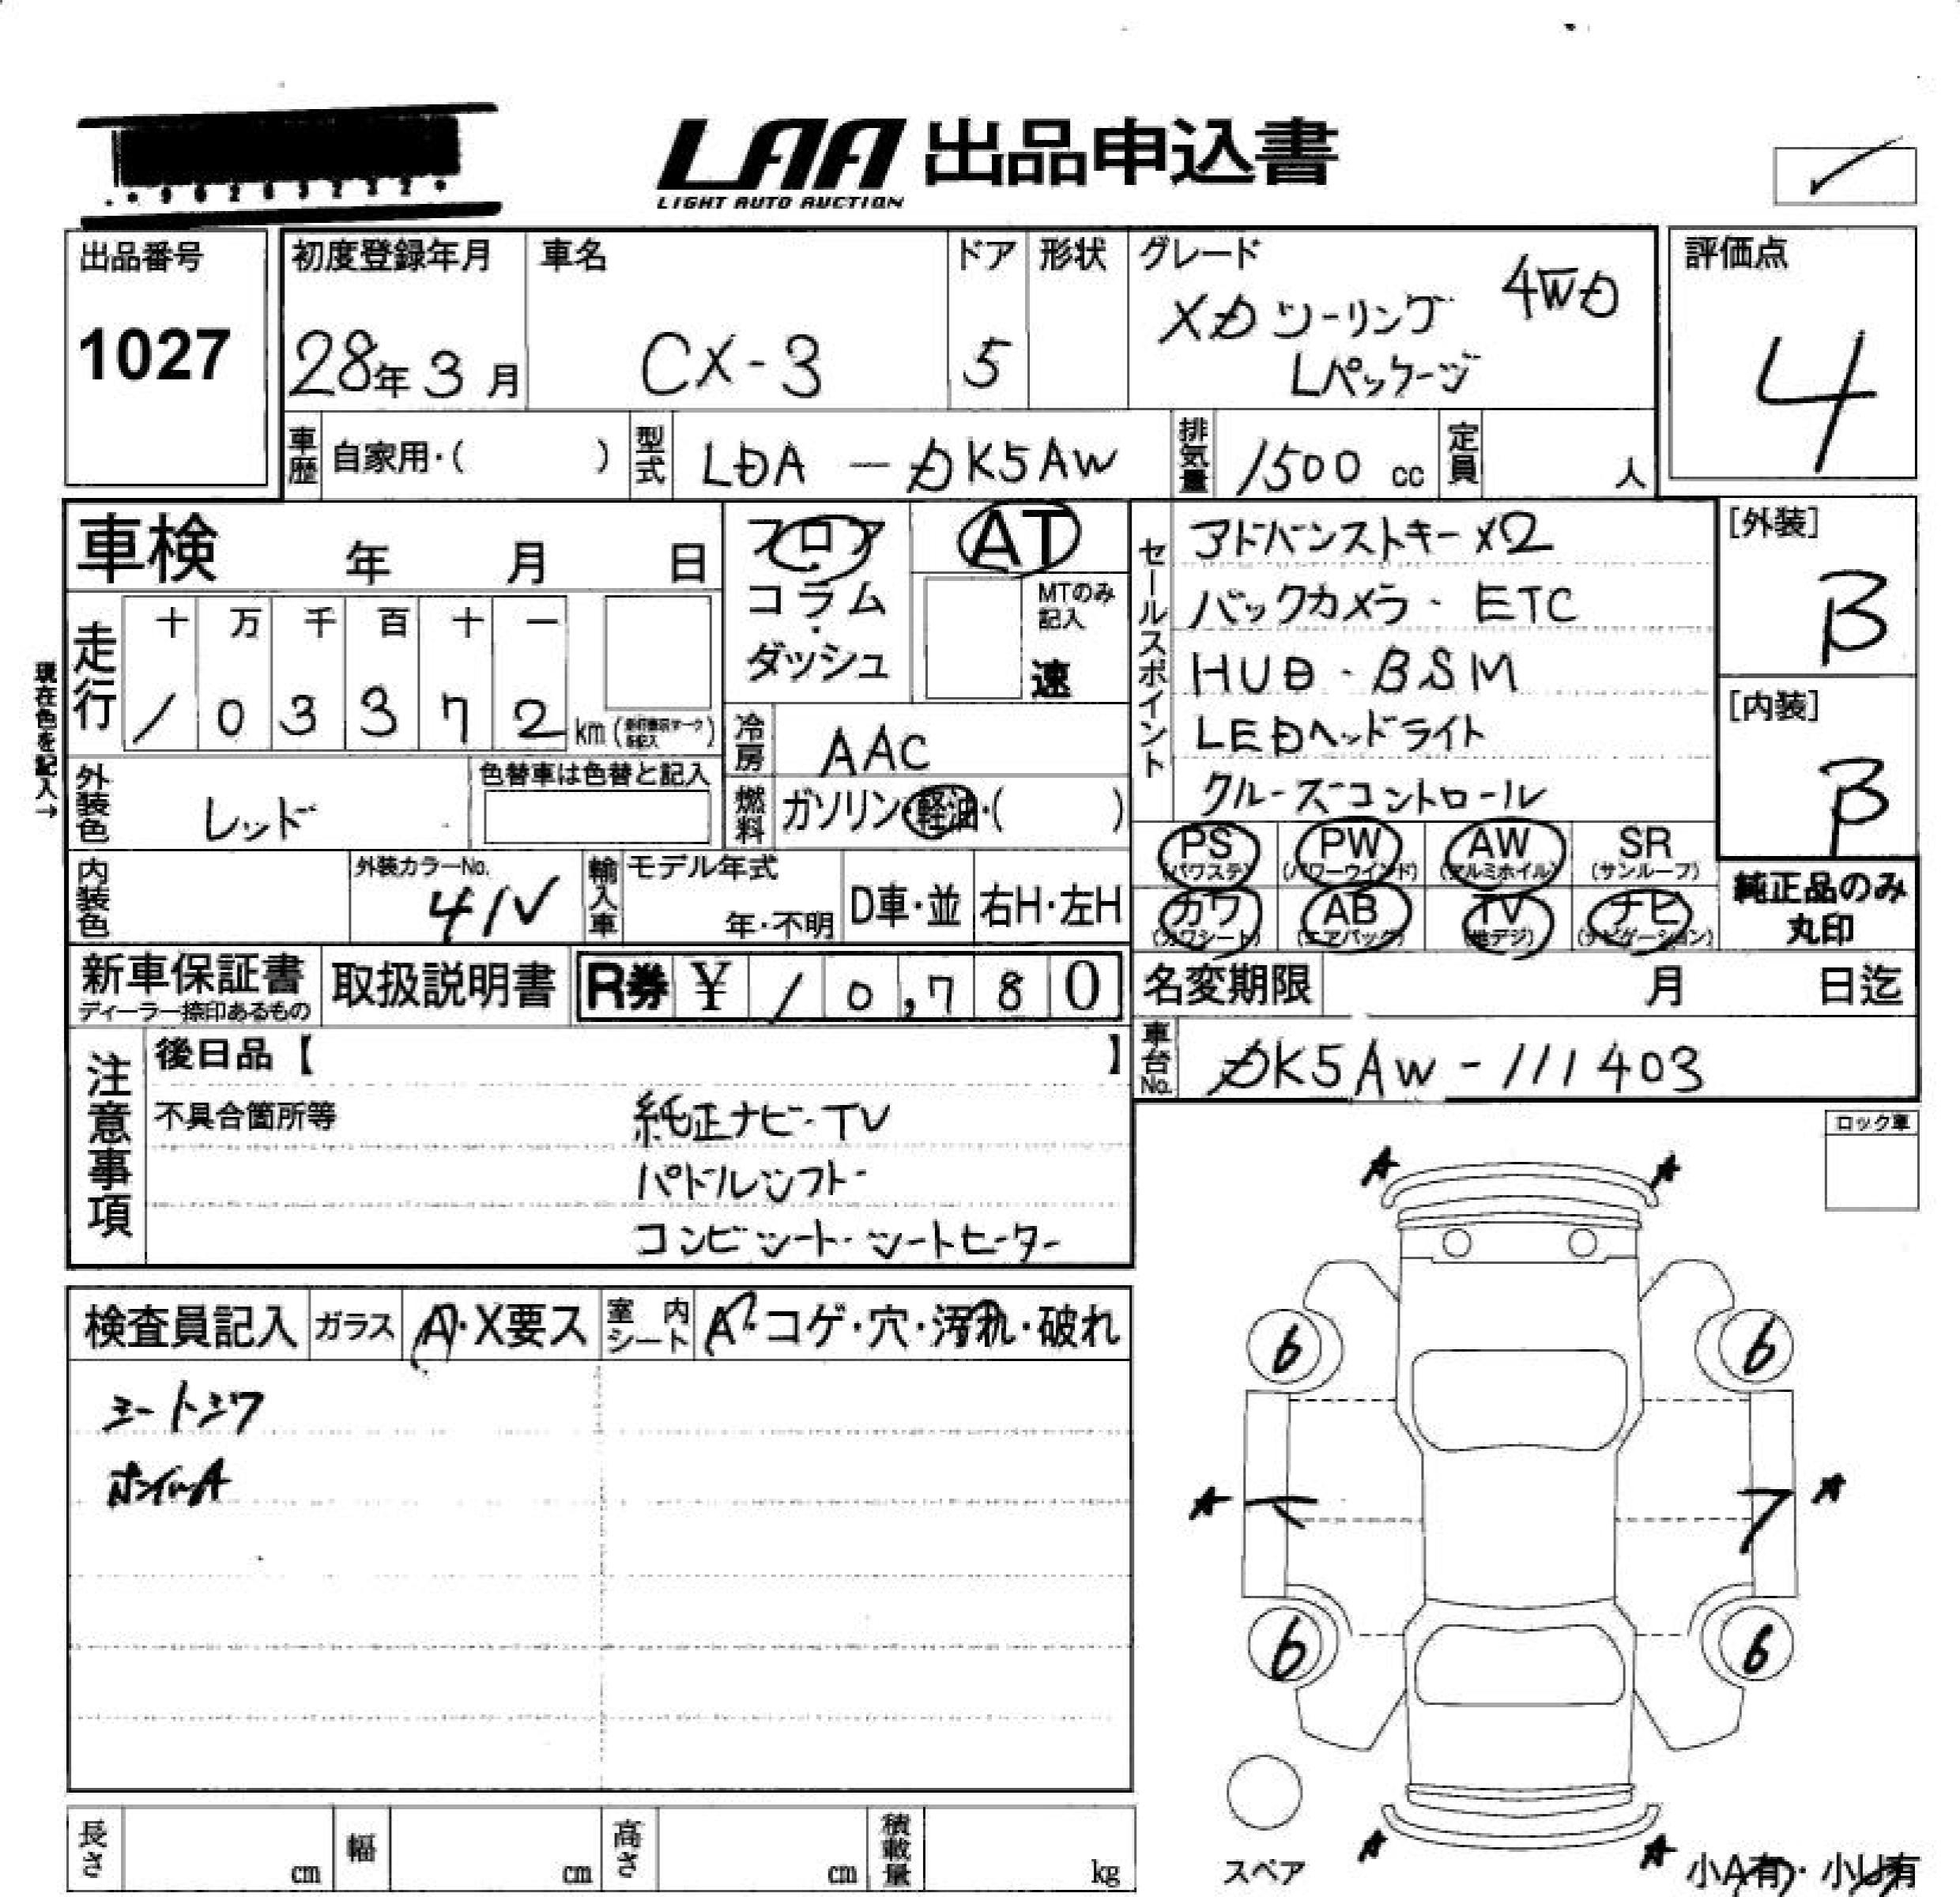 LAA 出品申込書
LIGHT AUTO AUCTION
出品番号
1027
初度登録年月
28年 3月
車名
CX-3
ドア
5
形状
グレード
XD ツーリング 4WD
Lパッケージ
評価点
4
車歴 自家用・( )
型式 LDA-DK5AW
排気量 1500 cc
定員 人
車検 年 月 日
走行
十 万 千 百 十 一
1 0 3 3 7 2 km
現在色を記入→
外装色 レッド
色替車は色替と記入
内装色
外装カラーNo.
41V
フロア
コラム
ダッシュ
AT
MTのみ
記入
速
冷房 AAC
燃料 ガソリン・軽油・( )
輸入車
モデル年式
年・不明
D車・並
右H・左H
セールスポイント
アドバンストキー×2
バックカメラ・ETC
HUD・BSM
LEDヘッドライト
クルーズコントロール
PS PW AW SR
(パワステ) (パワーウインド) (アルミホイル) (サンルーフ)
カワ AB TV ナビ
(カワシート) (エアバック) (地デジ) (ナビゲーション)
[外装]
B
[内装]
B
純正品のみ
丸印
新車保証書
ディーラー捺印あるもの
取扱説明書
R券 ¥ 10,780
名変期限 月 日迄
車台No. DK5AW-111403
注意事項
後日品【 】
不具合箇所等
純正ナビ・TV
パドルシフト・
コンビシート・シートヒーター
ロック車
検査員記入
ガラス A・X要ス
室内シート A・コゲ・穴・汚れ・破れ
シートシワ
ホイルA
A A
6 6
A A
6 6
A A
スペア
小A有・小U有
長さ cm
幅 cm
高さ cm
積載量 kg